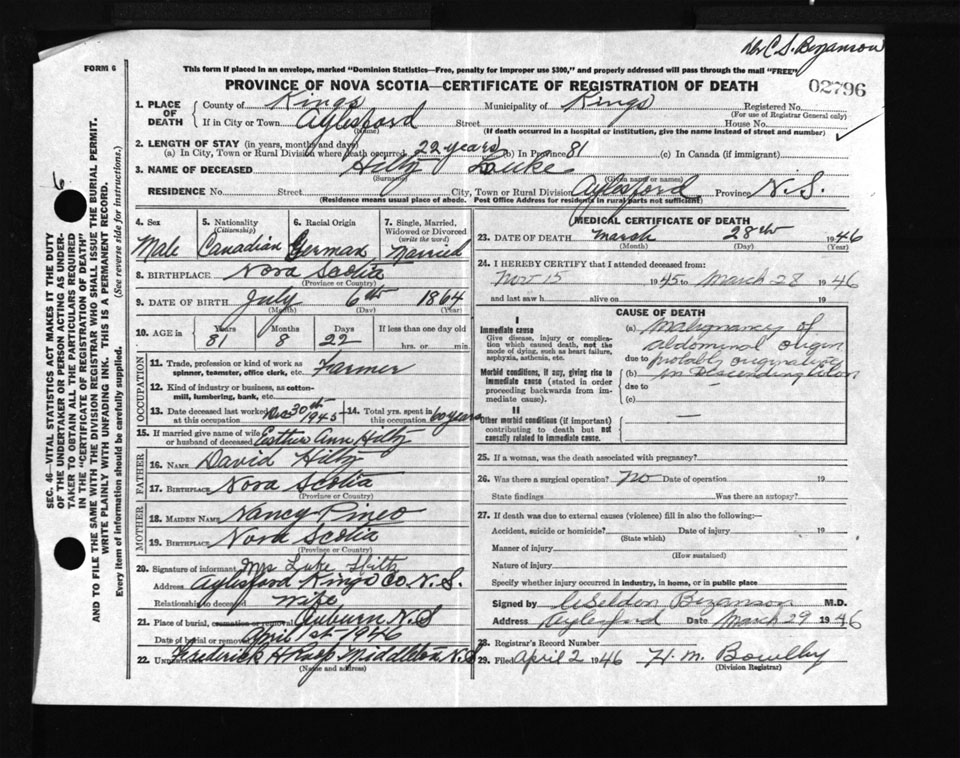 Dr C. S. Bezanson
FORM 6
This form if placed in an envelope, marked "Dominion Statistics—Free, penalty for improper use $300," and properly addressed will pass through the mail "FREE"
PROVINCE OF NOVA SCOTIA—CERTIFICATE OF REGISTRATION OF DEATH
02796
1. PLACE OF DEATH
County of Kings Municipality of Kings Registered No.
(For use of Registrar General only)
If in City or Town Aylesford Street House No.
(Name) (If death occurred in a hospital or institution, give the name instead of street and number)
2. LENGTH OF STAY (in years, months and days)
(a) In City, Town or Rural Division where death occurred 22 years (b) In Province 81 (c) In Canada (if immigrant)
3. NAME OF DECEASED Hilty Luke
(Surname) (Given name or names)
RESIDENCE No. Street City, Town or Rural Division Aylesford Province N.S.
(Residence means usual place of abode. Post Office Address for residents in rural parts not sufficient)
4. Sex Male
5. Nationality (Citizenship) Canadian
6. Racial Origin German
7. Single, Married, Widowed or Divorced (write the word) Married
8. BIRTHPLACE Nova Scotia
(Province or Country)
9. DATE OF BIRTH July 6th 1864
(Month) (Day) (Year)
10. AGE in Years 81 Months 8 Days 22 If less than one day old
hrs. or min.
OCCUPATION
11. Trade, profession or kind of work as spinner, teamster, office clerk, etc. Farmer
12. Kind of industry or business, as cotton-mill, lumbering, bank, etc.
13. Date deceased last worked at this occupation Dec 30th 1945
14. Total yrs. spent in this occupation 60 years
15. If married give name of wife or husband of deceased Esther Ann Hilty
FATHER
16. NAME David Hilty
17. BIRTHPLACE Nova Scotia
(Province or Country)
MOTHER
18. MAIDEN NAME Nancy Pineo
19. BIRTHPLACE Nova Scotia
(Province or Country)
20. Signature of informant Mrs Luke Hiltz
Address Aylesford Kings Co. N.S.
Relationship to deceased Wife
21. Place of burial, cremation or removal Auburn N.S
Date of burial or removal April 1st 1946
22. Undertaker Frederick H Middleton N.S
(Name and address)
MEDICAL CERTIFICATE OF DEATH
23. DATE OF DEATH March 28th 1946
(Month) (Day)
24. I HEREBY CERTIFY that I attended deceased from:
Nov 15 1945 to March 28 1946
and last saw h alive on 19
CAUSE OF DEATH
I
Immediate cause
Give disease, injury or complication which caused death, not the mode of dying, such as heart failure, asphyxia, asthenia, etc.
(a) Malignancy of
abdominal origin
due to probably originating
Morbid conditions, if any, giving rise to immediate cause (stated in order proceeding backwards from immediate cause).
(b) in Descending Colon
due to —
(c)
II
Other morbid conditions (if important) contributing to death but not causally related to immediate cause. —
25. If a woman, was the death associated with pregnancy?
26. Was there a surgical operation? No Date of operation 19
State findings Was there an autopsy?
27. If death was due to external causes (violence) fill in also the following:—
Accident, suicide or homicide? Date of injury 19
(State which)
Manner of injury
(How sustained)
Nature of injury
Specify whether injury occurred in industry, in home, or in public place
Signed by C Seldon Bezanson M.D.
Address Aylesford Date March 29 1946
28. Registrar's Record Number
29. Filed April 2 1946 H. M. Bowlby
(Division Registrar)
6
SEC. 46—VITAL STATISTICS ACT MAKES IT THE DUTY
OF THE UNDERTAKER OR PERSON ACTING AS UNDER-
TAKER TO OBTAIN ALL THE PARTICULARS REQUIRED
IN THE "CERTIFICATE OF REGISTRATION OF DEATH"
AND TO FILE THE SAME WITH THE DIVISION REGISTRAR WHO SHALL ISSUE THE BURIAL PERMIT.
WRITE PLAINLY WITH UNFADING INK. THIS IS A PERMANENT RECORD.
Every item of information should be carefully supplied. (See reverse side for instructions.)